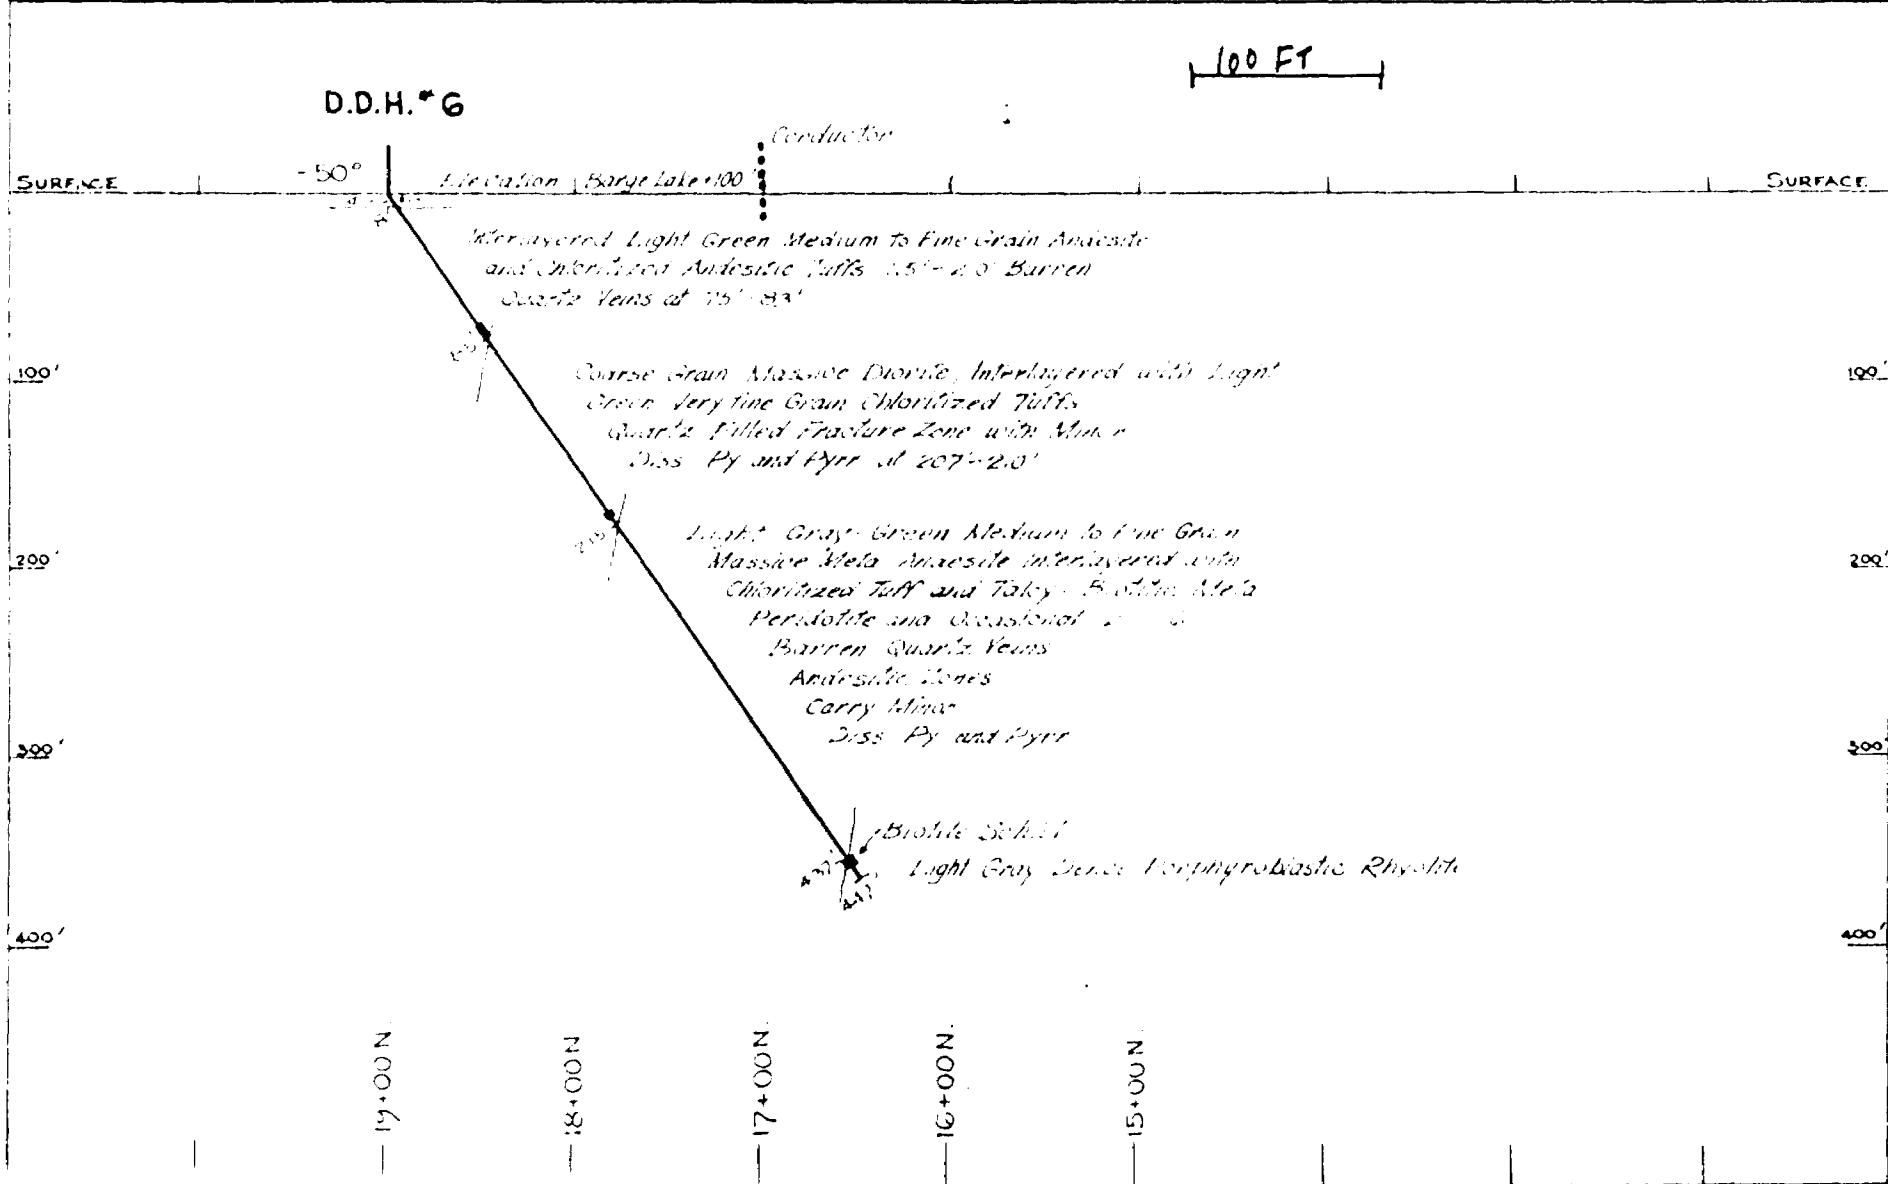 100 FT
D.D.H. #6
Conductor
-50°
SURFACE
Elevation Barge Lake +100'
SURFACE
Interlayered Light Green Medium to Fine Grain Andesite
and Chloritized Andesitic Tuffs Barren
Quartz Veins at 75'-83'
100'
Coarse Grain Massive Diorite, Interlayered with Light
100'
Green Very fine Grain Chloritized Tuffs
Quartz Filled Fracture Zone with Minor
Diss Py and Pyrr at 207'-2.0'
Light Gray-Green Medium to Fine Grain
200'
Massive Meta Andesite Interlayered with
200'
Chloritized Tuff and Talcy-Biotitic Meta
Peridotite and Occasional
Barren Quartz Veins
Andesitic Zones
Carry Minor
Diss Py and Pyrr
300'
300'
Biotite Schist
Light Gray Dense Porphyroblastic Rhyolite
400'
400'
19+00N
18+00N
17+00N
16+00N.
15+00N